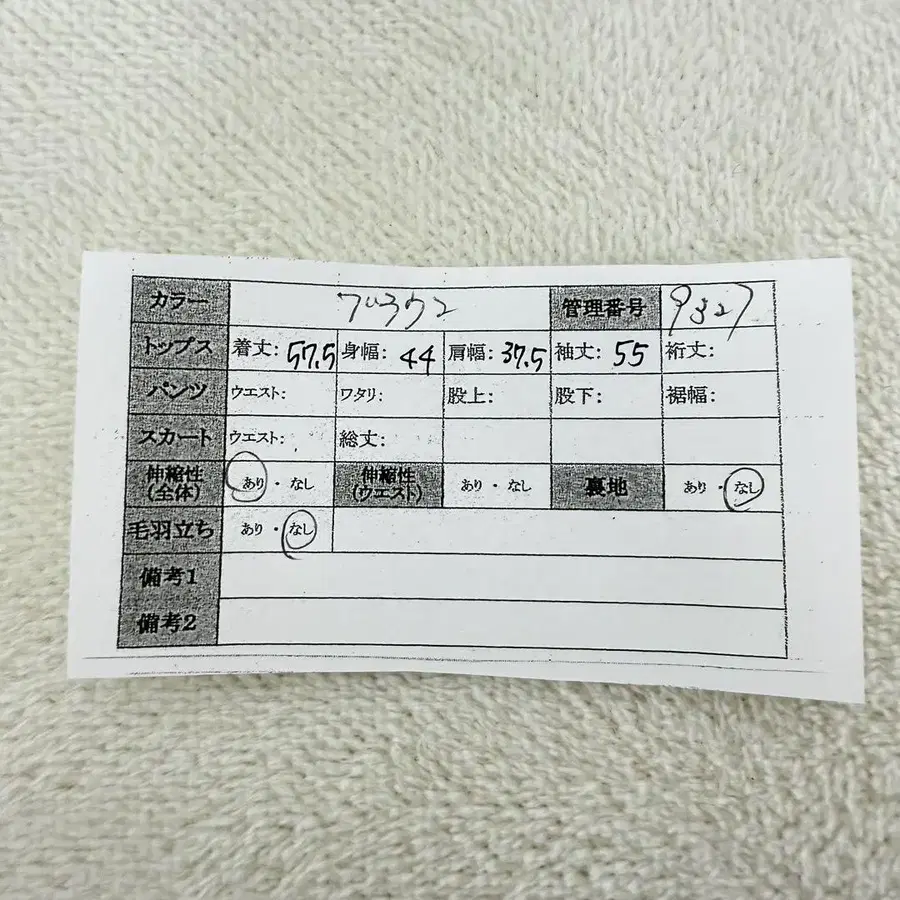 カラー 管理番号 9327
トップス 着丈: 57.5 身幅: 44 肩幅: 37.5 袖丈: 55 裄丈:
パンツ ウエスト: ワタリ: 股上: 股下: 裾幅:
スカート ウエスト: 総丈:
伸縮性(全体) あり・なし 伸縮性(ウエスト) あり・なし 裏地 あり・なし
毛羽立ち あり・なし
備考1
備考2